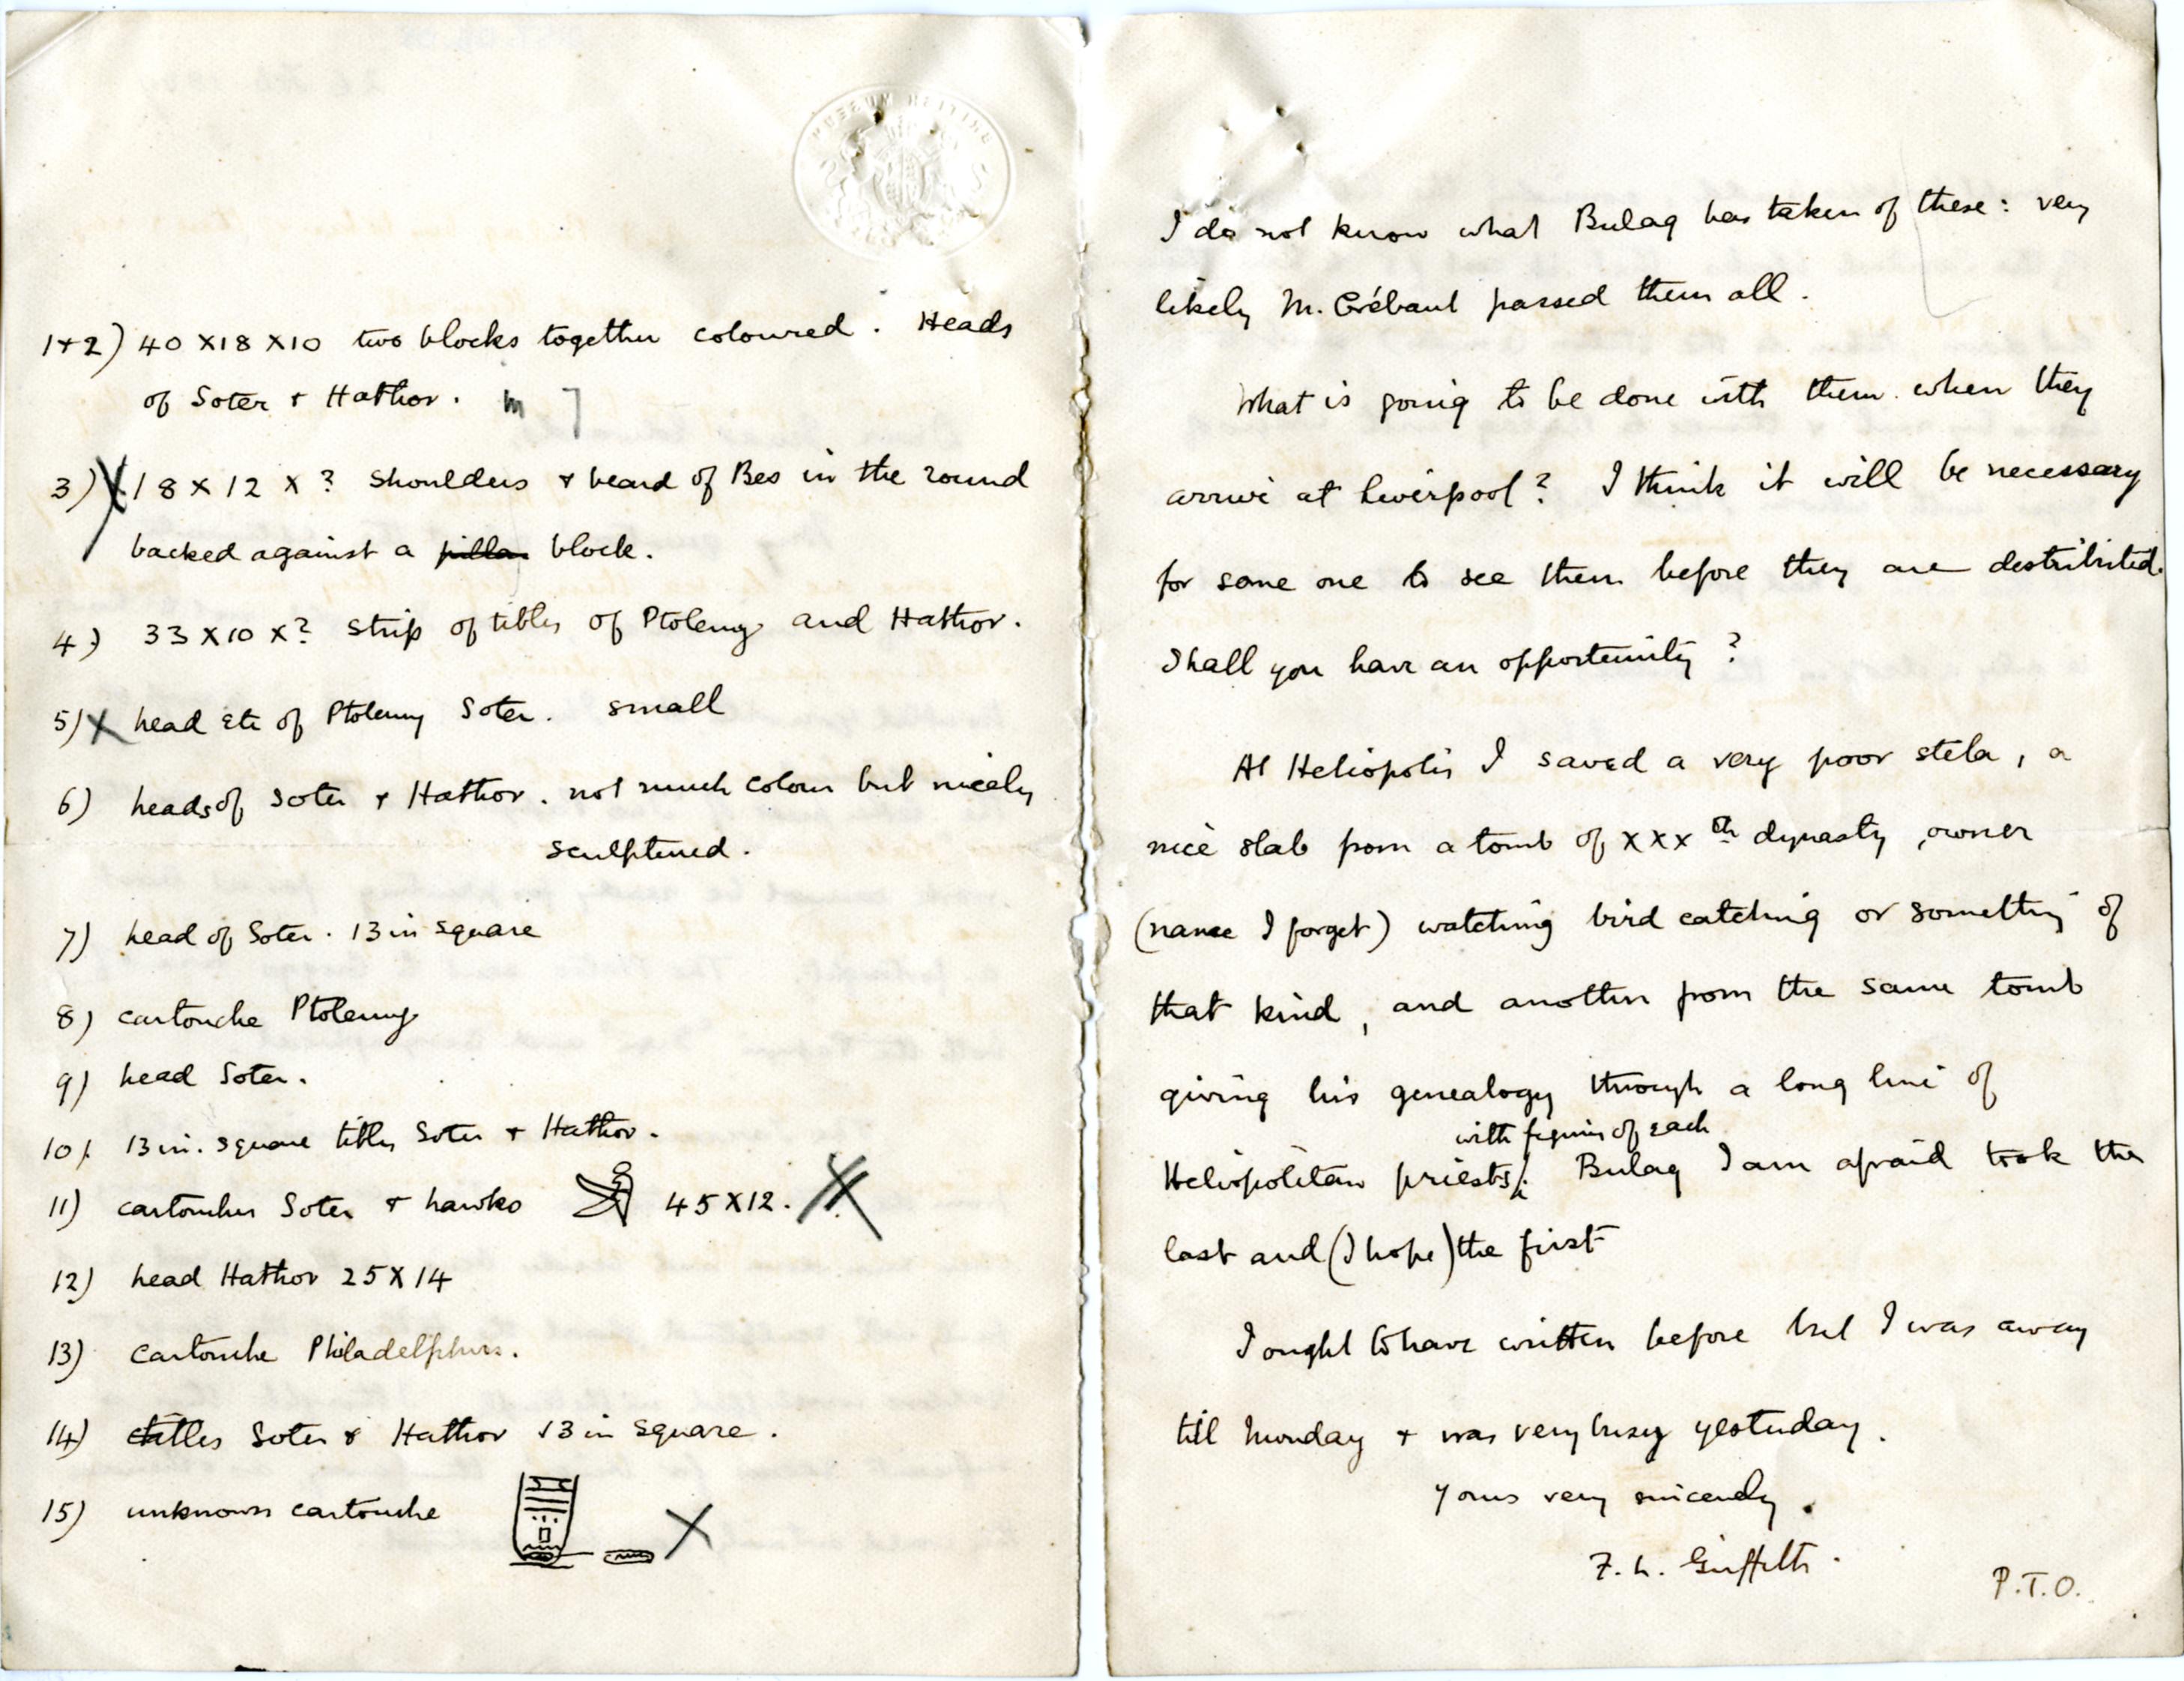 1+2) 40 X 18 X 10 two blocks together coloured. Heads
of Soter + Hathor. in
3) X 18 X 12 X ? shoulders + beard of Bes in the round
backed against a pillar block.
4) 33 X 10 X ? strip of titles of Ptolemy and Hathor.
5) X head etc of Ptolemy Soter. small
6) heads of Soter + Hathor. not much colour but nicely
sculptured.
7) head of Soter. 13 in square
8) cartouche Ptolemy
9) head Soter.
10) 13 in. square titles Soter + Hathor.
11) cartouches Soter + hawks 45 X 12. X
12) head Hathor 25 X 14
13) cartouche Philadelphus.
14) titles Soter & Hathor 13 in square.
15) unknown cartouche X
MUSEUM BRITISH
I do not know what Bulaq has taken of these: very
likely M. Grébaut passed them all.
What is going to be done with them when they
arrive at Liverpool? I think it will be necessary
for some one to see them before they are destributed.
Shall you have an opportunity?
At Heliopolis I saved a very poor stela, a
nice slab from a tomb of XXXth dynasty, owner
(name I forget) watching bird catching or something of
that kind, and another from the same tomb
giving his genealogy through a long line of
with figures of each
Heliopolitan priests. Bulaq I am afraid took the
last and (I hope) the first
I ought to have written before but I was away
till Monday + was very busy yesterday.
Yours very sincerely.
F. L. Griffith.
P.T.O.